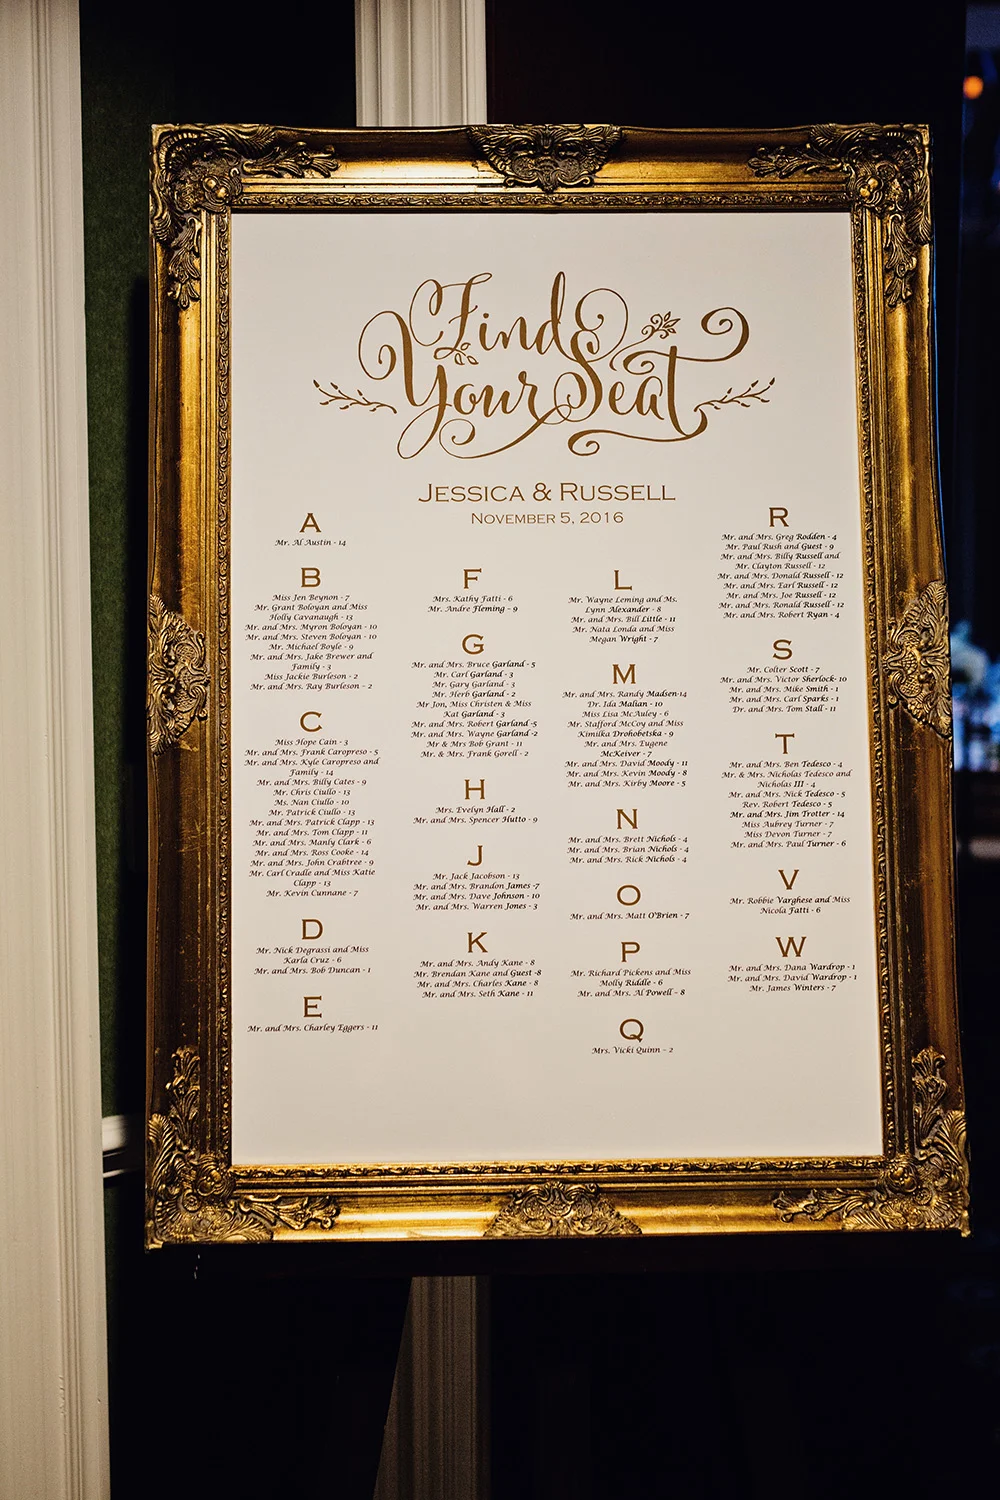 Find
Your Seat
JESSICA & RUSSELL
NOVEMBER 5, 2016
A
Mr. Al Austin - 14
B
Miss Jen Beynon - 7
Mr. Grant Boloyan and Miss
Holly Cavanaugh - 13
Mr. and Mrs. Myron Boloyan - 10
Mr. and Mrs. Steven Boloyan - 10
Mr. Michael Boyle - 9
Mr. and Mrs. Jake Brewer and
Family - 3
Miss Jackie Burleson - 2
Mr. and Mrs. Ray Burleson - 2
C
Miss Hope Cain - 3
Mr. and Mrs. Frank Caropreso - 5
Mr. and Mrs. Kyle Caropreso and
Family - 14
Mr. and Mrs. Billy Cates - 9
Mr. Chris Ciullo - 13
Ms. Nan Ciullo - 10
Mr. Patrick Ciullo - 13
Mr. and Mrs. Patrick Clapp - 13
Mr. and Mrs. Tom Clapp - 11
Mr. and Mrs. Manly Clark - 6
Mr. and Mrs. Ross Cooke - 14
Mr. and Mrs. John Crabtree - 9
Mr. Carl Cradle and Miss Katie
Clapp - 13
Mr. Kevin Cunnane - 7
D
Mr. Nick Degrassi and Miss
Karla Cruz - 6
Mr. and Mrs. Bob Duncan - 1
E
Mr. and Mrs. Charley Eggers - 11
F
Mrs. Kathy Fatti - 6
Mr. Andre Fleming - 9
G
Mr. and Mrs. Bruce Garland - 5
Mr. Carl Garland - 3
Mr. Gary Garland - 3
Mr. Herb Garland - 2
Mr Jon, Miss Christen & Miss
Kat Garland - 3
Mr. and Mrs. Robert Garland -5
Mr. and Mrs. Wayne Garland -2
Mr & Mrs Bob Grant - 11
Mr. & Mrs. Frank Gorell - 2
H
Mrs. Evelyn Hall - 2
Mr. and Mrs. Spencer Hutto - 9
J
Mr. Jack Jacobson - 13
Mr. and Mrs. Brandon James -7
Mr. and Mrs. Dave Johnson - 10
Mr. and Mrs. Warren Jones - 3
K
Mr. and Mrs. Andy Kane - 8
Mr. Brendan Kane and Guest -8
Mr. and Mrs. Charles Kane - 8
Mr. and Mrs. Seth Kane - 11
L
Mr. Wayne Leming and Ms.
Lynn Alexander - 8
Mr. and Mrs. Bill Little - 11
Mr. Nata Londa and Miss
Megan Wright - 7
M
Mr. and Mrs. Randy Madsen-14
Dr. Ida Malian - 10
Miss Lisa McAuley - 6
Mr. Stafford McCoy and Miss
Kimilka Drohobetska - 9
Mr. and Mrs. Eugene
McKeiver - 7
Mr. and Mrs. David Moody - 11
Mr. and Mrs. Kevin Moody - 8
Mr. and Mrs. Kirby Moore - 5
N
Mr. and Mrs. Brett Nichols - 4
Mr. and Mrs. Brian Nichols - 4
Mr. and Mrs. Rick Nichols - 4
O
Mr. and Mrs. Matt O'Brien - 7
P
Mr. Richard Pickens and Miss
Molly Riddle - 6
Mr. and Mrs. Al Powell - 8
Q
Mrs. Vicki Quinn - 2
R
Mr. and Mrs. Greg Rodden - 4
Mr. Paul Rush and Guest - 9
Mr. and Mrs. Billy Russell and
Mr. Clayton Russell - 12
Mr. and Mrs. Donald Russell - 12
Mr. and Mrs. Earl Russell - 12
Mr. and Mrs. Joe Russell - 12
Mr. and Mrs. Ronald Russell - 12
Mr. and Mrs. Robert Ryan - 4
S
Mr. Colter Scott - 7
Mr. and Mrs. Victor Sherlock- 10
Mr. and Mrs. Mike Smith - 1
Mr. and Mrs. Carl Sparks - 1
Dr. and Mrs. Tom Stall - 11
T
Mr. and Mrs. Ben Tedesco - 4
Mr. & Mrs. Nicholas Tedesco and
Nicholas III - 4
Mr. and Mrs. Nick Tedesco - 5
Rev. Robert Tedesco - 5
Mr. and Mrs. Jim Trotter - 14
Miss Aubrey Turner - 7
Miss Devon Turner - 7
Mr. and Mrs. Paul Turner - 6
V
Mr. Robbie Varghese and Miss
Nicola Fatti - 6
W
Mr. and Mrs. Dana Wardrop - 1
Mr. and Mrs. David Wardrop - 1
Mr. James Winters - 7